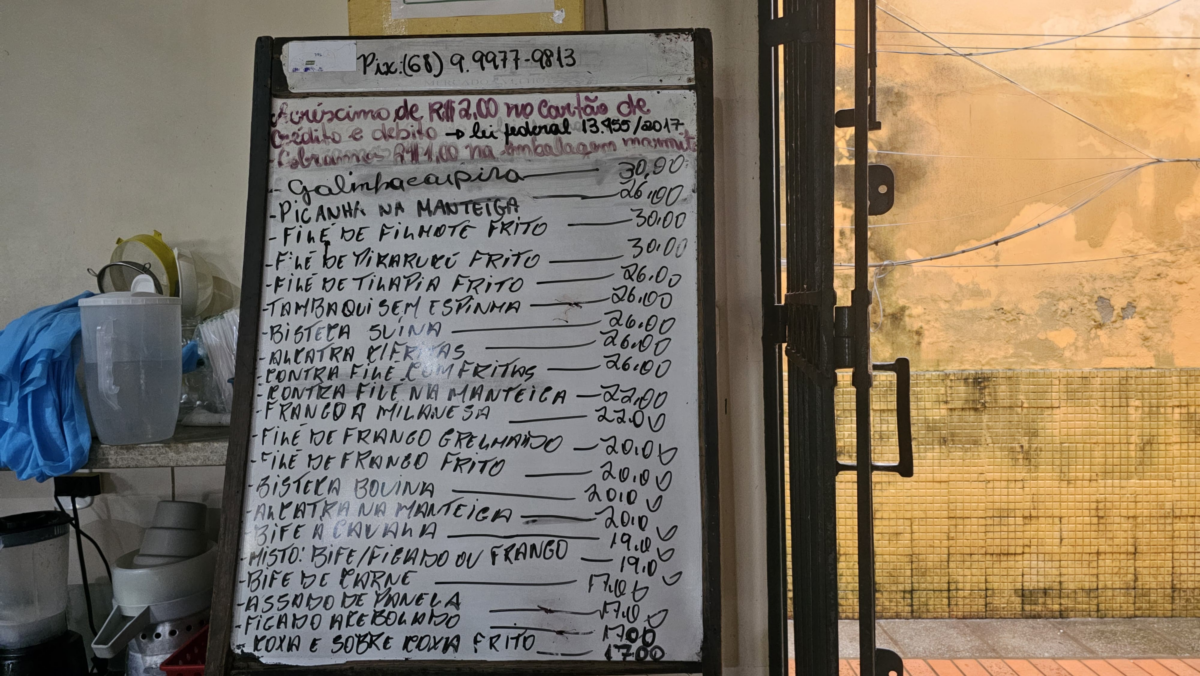 Pix:(68) 9.9977-9813
Acréscimo de R$ 2,00 no cartão de
Crédito e debito → lei federal 13.455/2017
-Cobramos R$ 1,00 na embalagem marmita
- Galinha caipira — 30,00
- PICANHA NA MANTEIGA 26,00
- FILÉ DE FILHOTE FRITO — 30,00
- FILÉ DE PIRARUCÚ FRITO — 30,00
- FILÉ DE TILAPIA FRITO — 26,00
- TAMBAQUI SEM ESPINHA — 26,00
- BISTECA SUINA — 26,00
- ALCATRA C/FRITAS — 26,00
- CONTRA FILÉ COM FRITAS — 26,00
- CONTRA FILÉ NA MANTEIGA — 22,00
- FRANGO A MILANESA — 22,00
- FILÉ DE FRANGO GRELHADO — 20,00
- FILÉ DE FRANGO FRITO — 20,00
- BISTECA BOVINA — 20,00
- ALCATRA NA MANTEIGA — 20,00
- BIFE A CAVALA — 19,00
- MISTO: BIFE/FIGADO OU FRANGO — 19,00
- BIFE DE CARNE — 17,00
- ASSADO DE PANELA — 17,00
- FIGADO ACEBOLADO — 17,00
- COXA E SOBRE COXA FRITO — 17,00